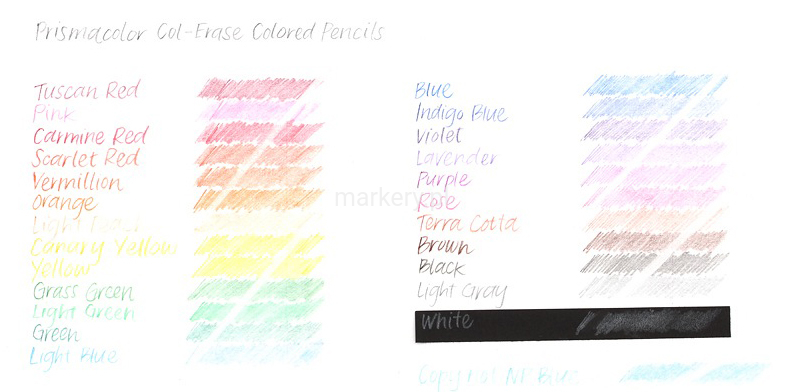 Prismacolor Col-Erase Colored Pencils
Tuscan Red
Pink
Carmine Red
Scarlet Red
Vermillion
Orange
Light Peach
Canary Yellow
Yellow
Grass Green
Light Green
Green
Light Blue
Blue
Indigo Blue
Violet
Lavender
Purple
Rose
Terra Cotta
Brown
Black
Light Gray
White
Copy not NP Blue